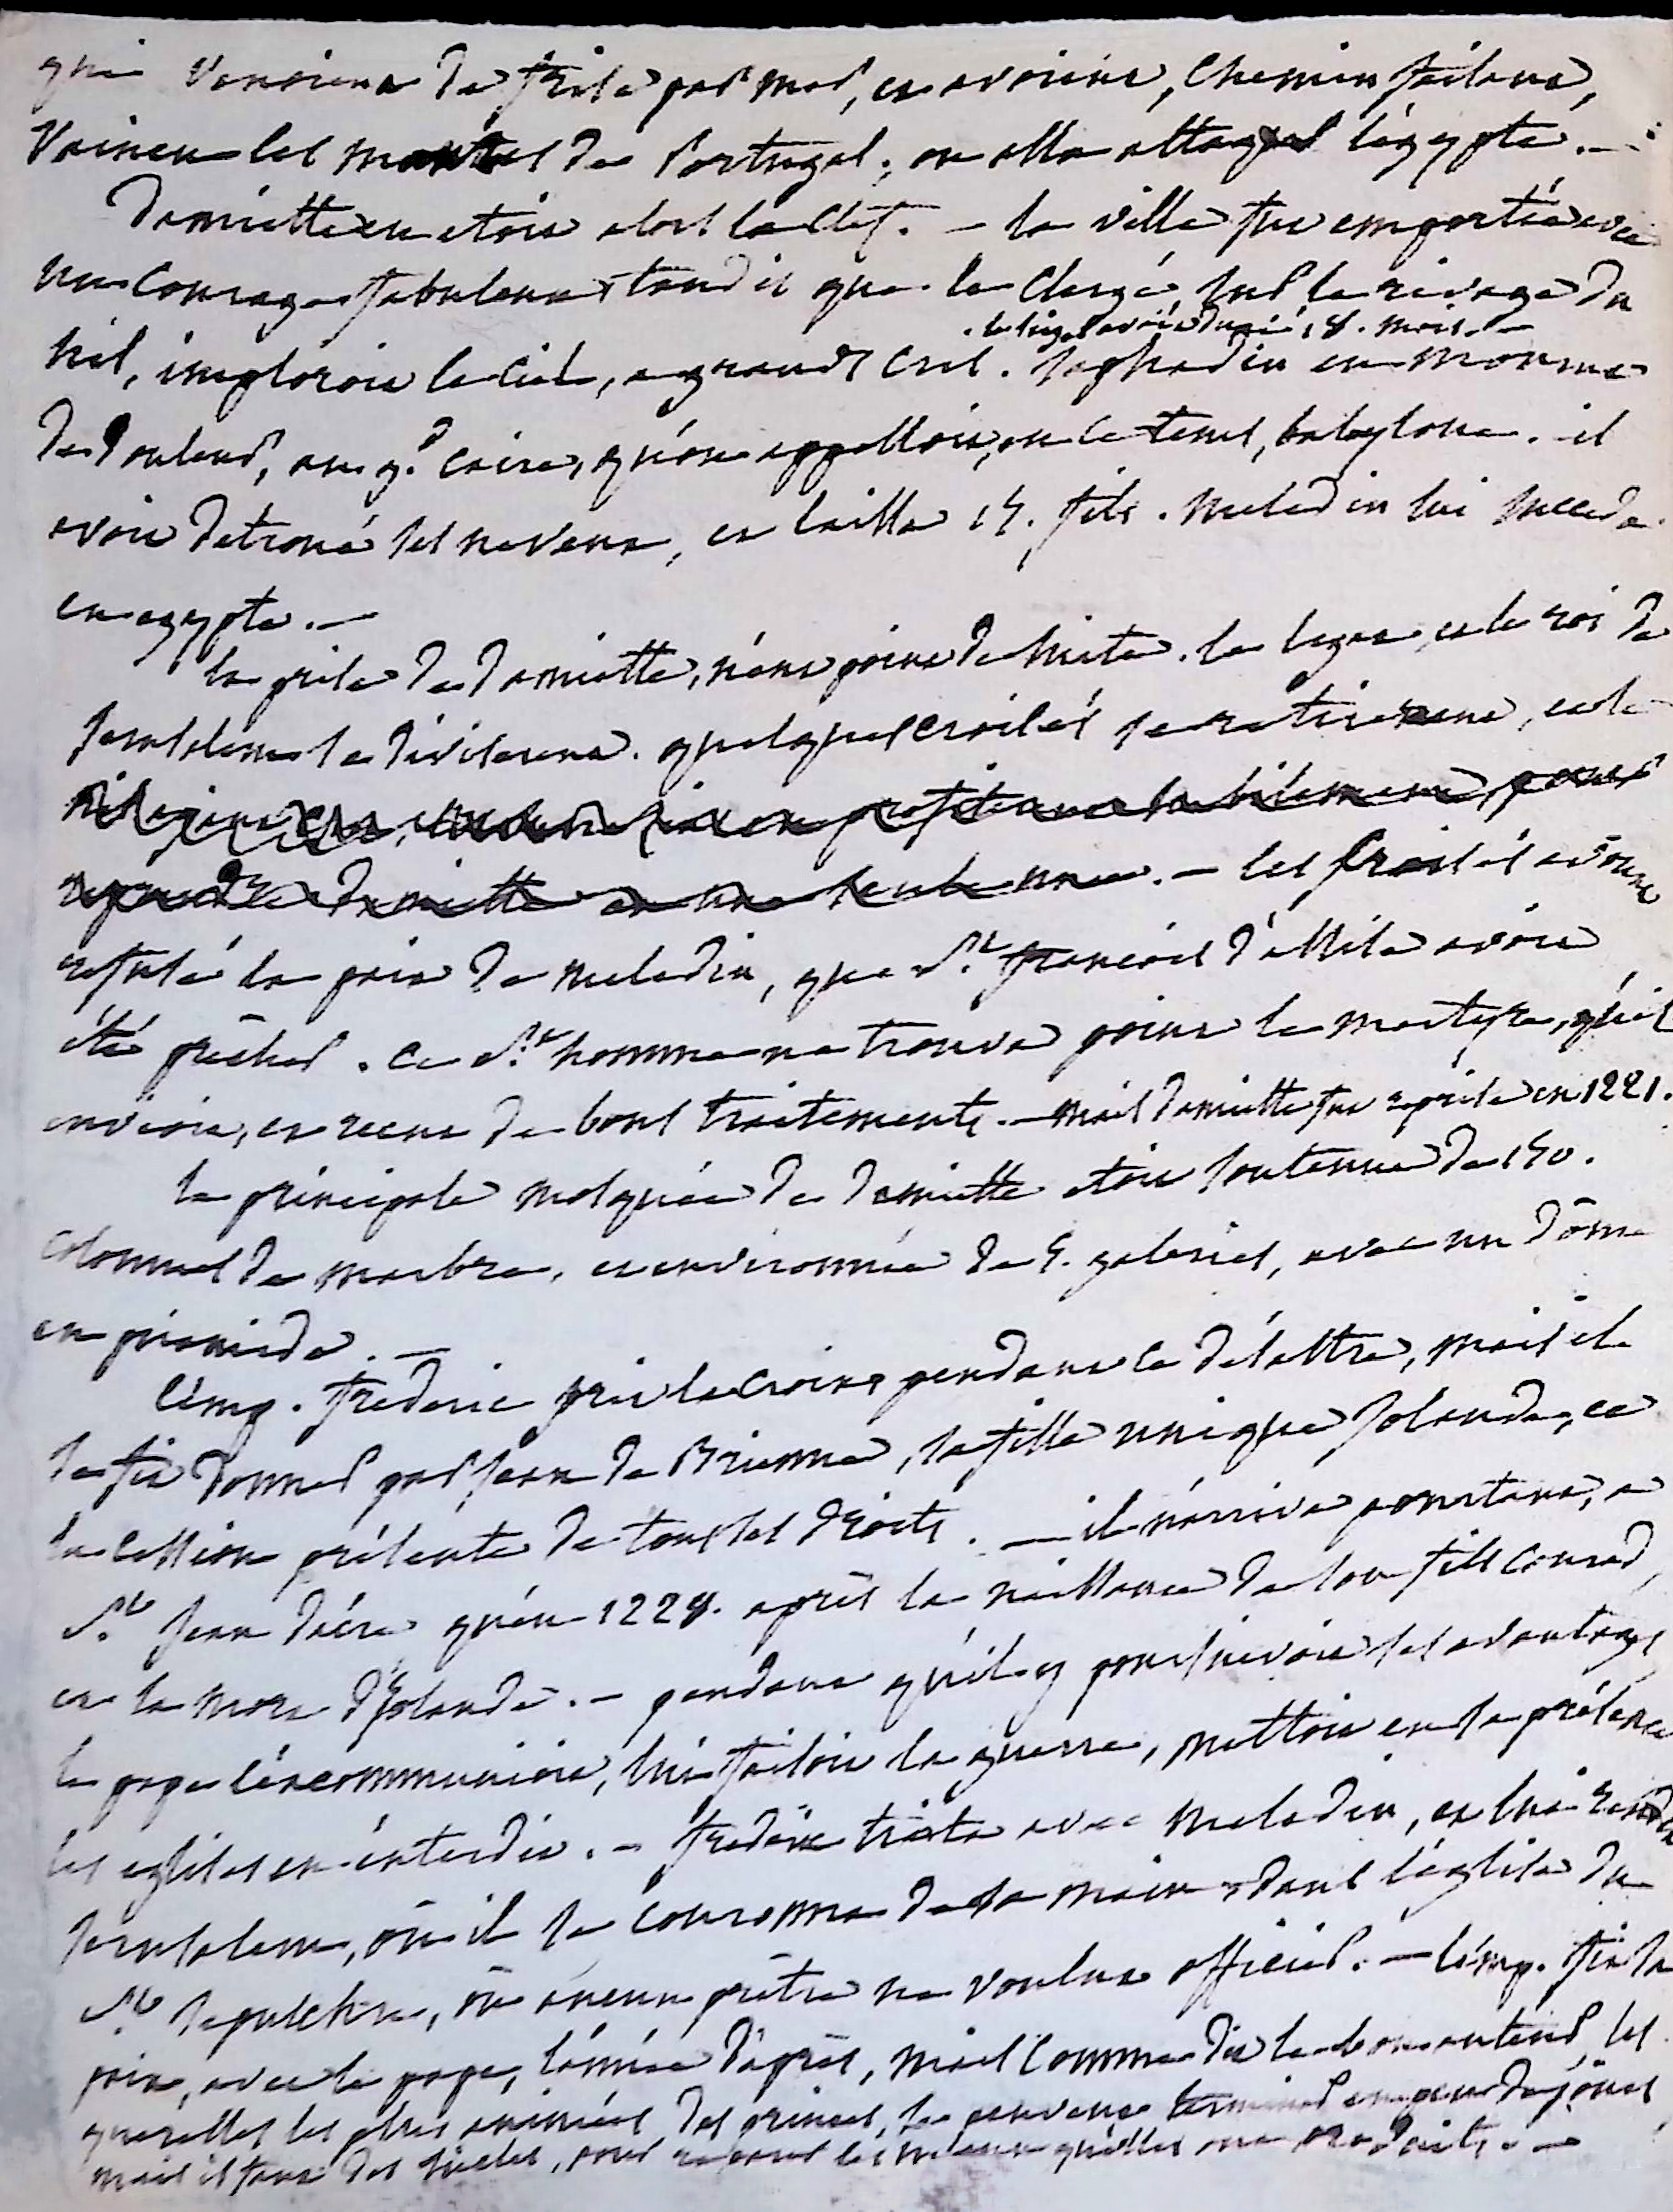 qui venoient de frise par mer, et avoient, chemin faisant,
vaincu les maures de Portugal, on alla attaquer l'égypte. —
Damiette en etoit alors la clef. — la ville fut emportée avec
un courage fabuleux, tandis que le clergé, sur le rivage du
. le siège avoit duré 18. mois. —
nil, imploroit le ciel, a grands cris. Saphadin en mourut
de douleur, au gd. caire, qu'on appelloit, en ce tems, babylone. il
avoit detroné ses neveux, et laissa 15. fils. Meledin lui succeda
en egypte. —
la prise de damiette, n'eut point de suite. le legat, et le roi de
Jerusalem se diviserent. quelques croisés se retirerent, et le
en profiterent habilement, pour
reprendre damiette en une seule nuit. — les croisés avoient
refusé la paix de meledin, que St. françois d'assise avoit
été prêcher. ce St. homme ne trouva point le martyre, qu'il
envioit, et reçut de bons traitements. — mais damiette fut reprise en 1221.
la principale mosquée de damiette etoit soutenue de 150.
colonnes de marbre, et environnée de 5. galeries, avec un dôme
en piramide. —
l'emp. frederic prit la croix pendant ce désastre, mais il
se fit donner par Jean de Brienne, sa fille unique Jolande, et
la cession présente de tous ses droits. — il n'arriva pourtant, a
St. Jean d'acre qu'en 1228. après la naissance de son fils conrad,
et la mort d'Jolande. — pendant qu'il y poursuivoit ses avantages
le pape l'excommunioit, lui faisoit la guerre, mettoit en sa présence
les eglises en interdit. — frederic traita avec meledin, et lui rendit
Jerusalem, où il se couronna de sa main dans l'église du
St. Sepulchre, où aucun prêtre ne voulut officier. — l'emp. fit la
paix, avec le pape, l'année d'après, mais comme dit le bon auteur, les
querelles les plus animées des princes, se peuvent terminer en peu de jours,
mais il faut des siecles, pour reparer les maux qu'elles ont produits. —